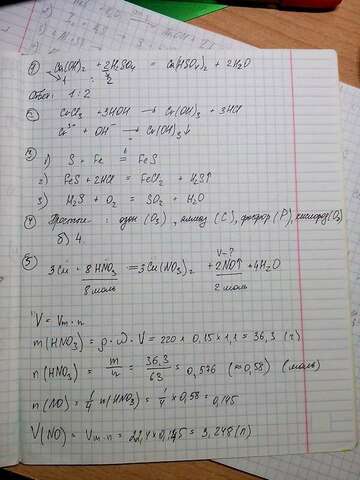 ① Ca(OH)₂ + 2H₂SO₄ = Ca(HSO₄)₂ + 2H₂O
1 : 2
Ответ: 1:2
② CrCl₃ + 3HOH → Cr(OH)₃ + 3HCl
Cr³⁺ + OH⁻ → Cr(OH)₃↓
③ 1) S + Fe =ᵗ FeS
2) FeS + 2HCl = FeCl₂ + H₂S↑
3) H₂S + O₂ = SO₂ + H₂O
④ Простые : озон (O₃), алмаз (C), фосфор (P), кислород (O₂)
б) 4
V-?
⑤ 3Cu + 8HNO₃ = 3Cu(NO₃)₂ + 2NO↑ + 4H₂O
8 моль 2 моль
V = Vm·n
m(HNO₃) = ρ·ω·V = 220 × 0,15 × 1,1 = 36,3 (г)
n(HNO₃) = m/n = 36,3/63 = 0,576 (≈0,58) (моль)
n(NO) = 1/4 n(HNO₃) = 1/4 × 0,58 = 0,145
V(NO) = Vm·n = 22,4 × 0,145 = 3,248 (л)